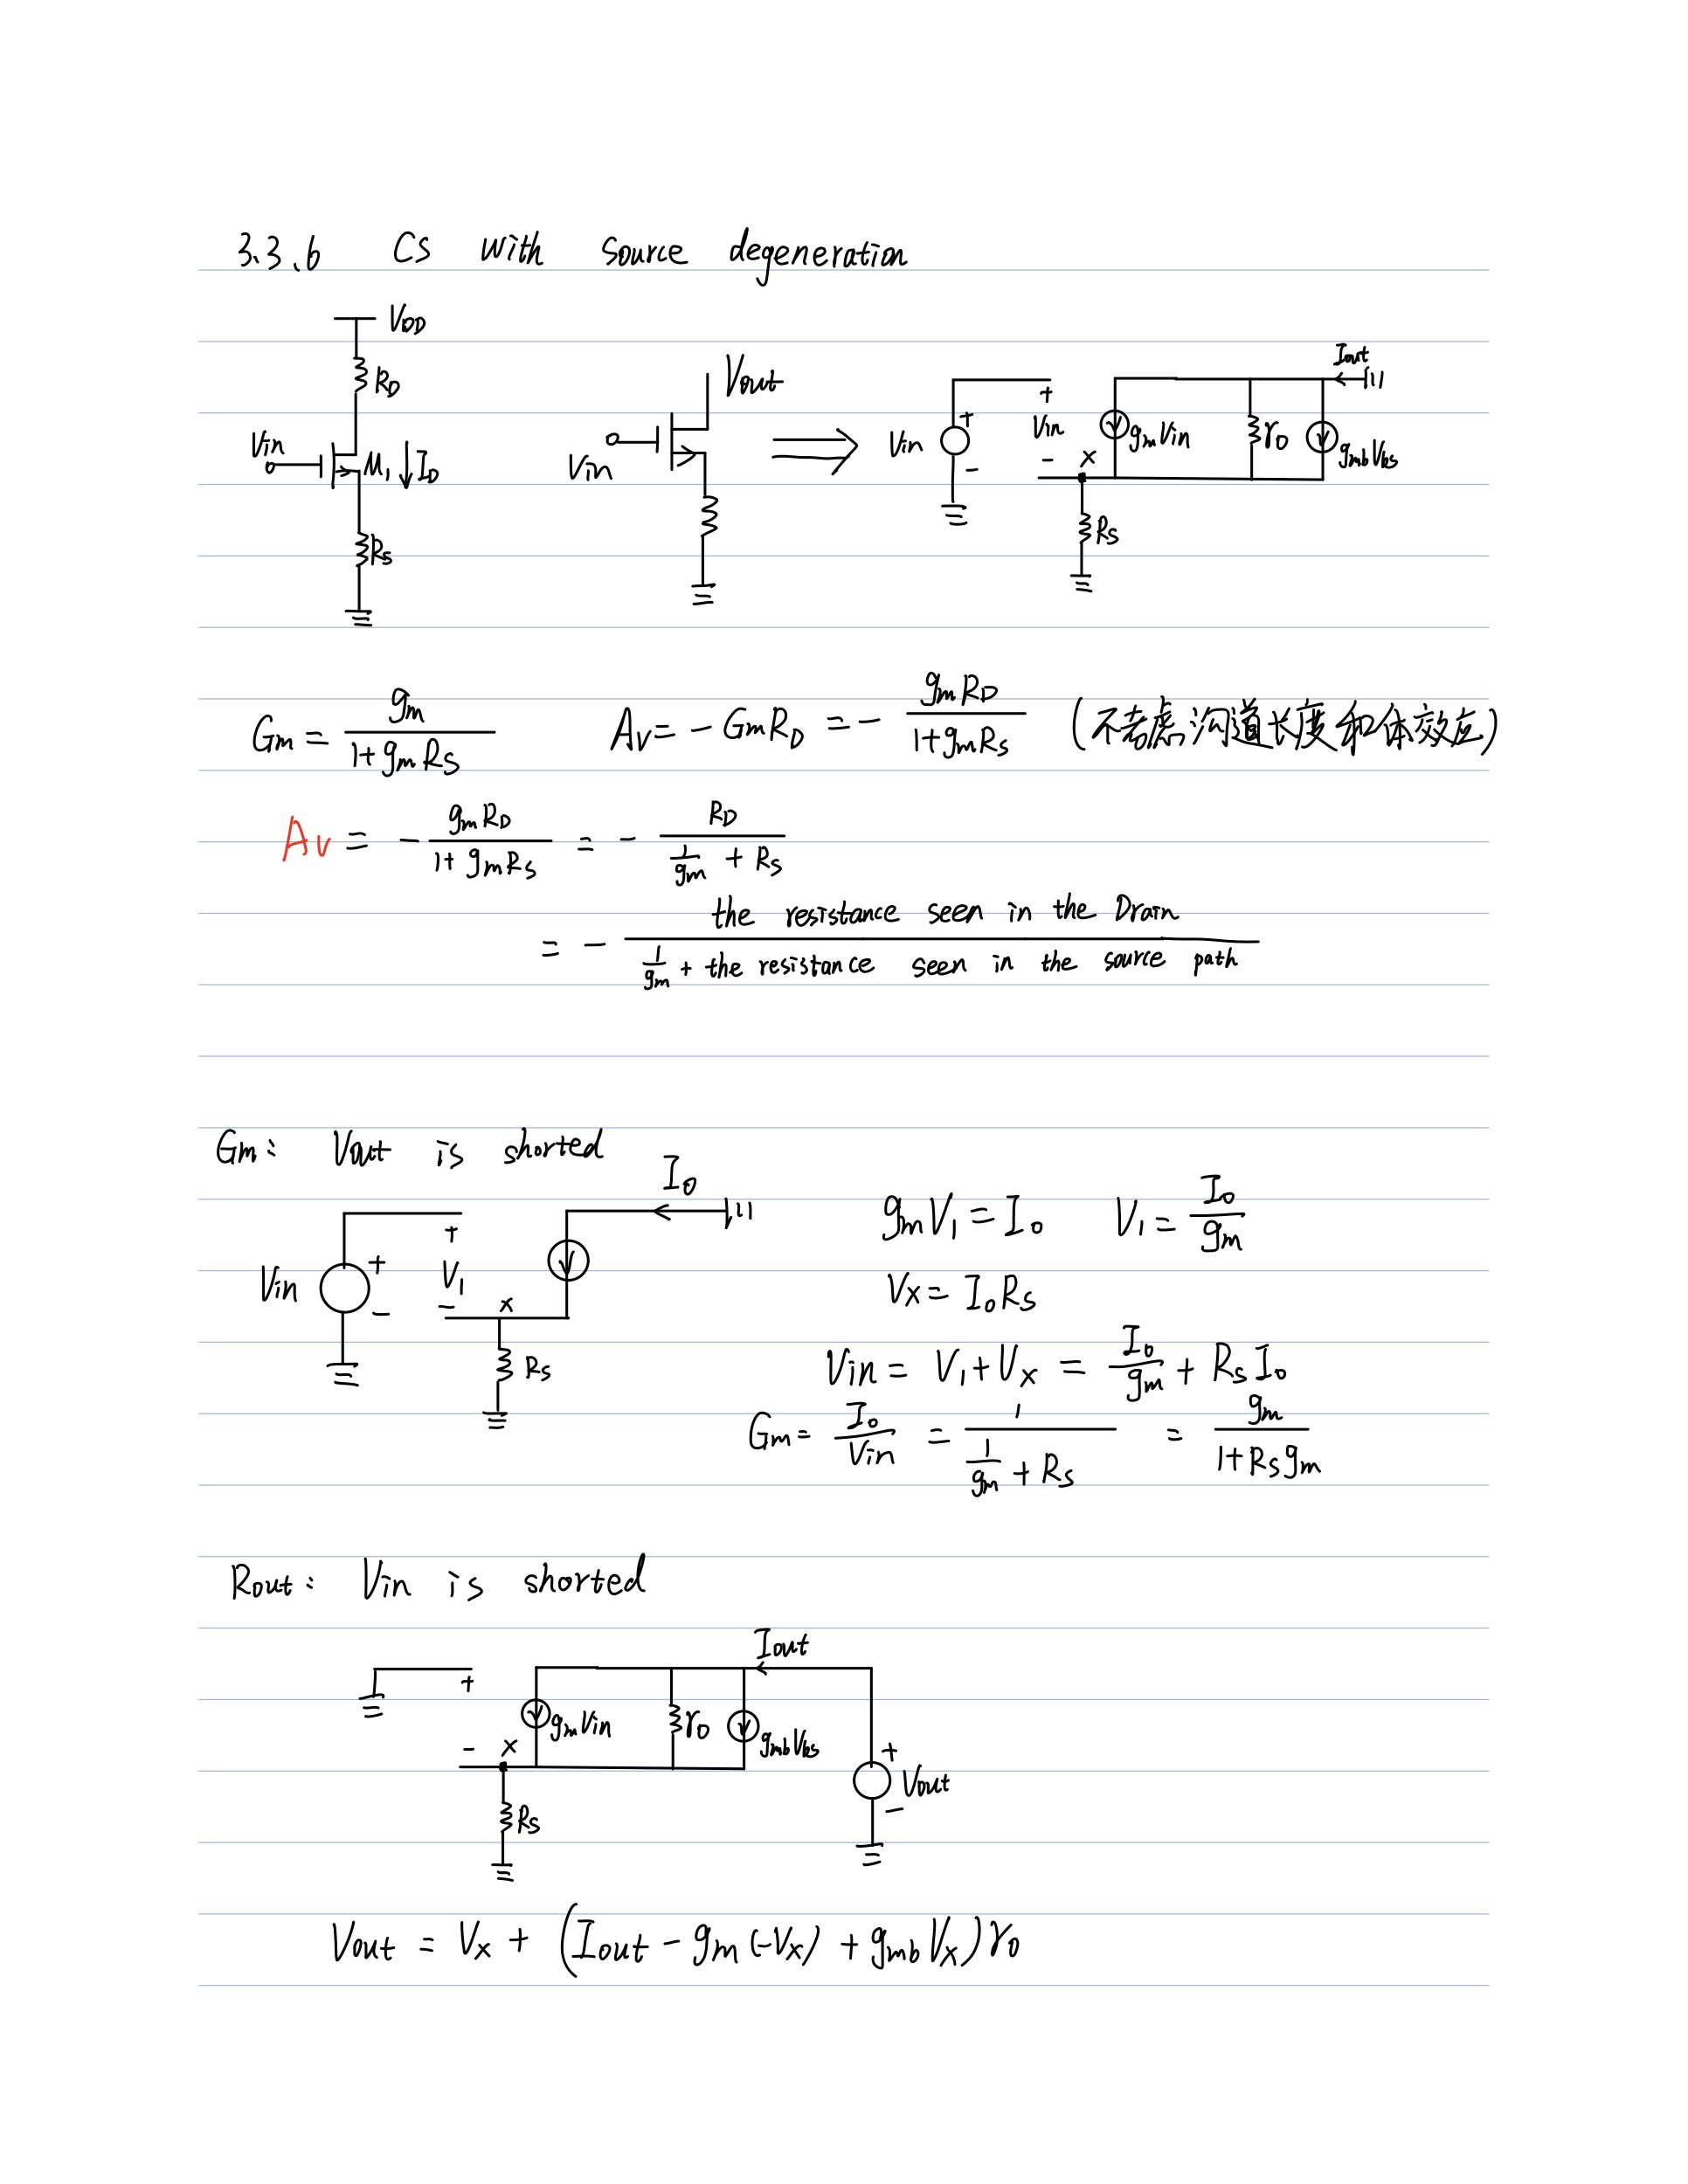 3.3.6 CS with source degeneration
VDD
RD
Vin
M1 ID
Rs
Vout
Vin
Vin
+
-
+
Vin
-
x
gmVin
ro
gmbVbs
Iout
Rs
Gm = gm / (1 + gmRs) Av = - GmRD = - gmRD / (1 + gmRs) (不考虑沟道长度和体效应)
Av = - gmRD / (1 + gmRs) = - RD / (1/gm + Rs)
= - the resistance seen in the Drain / (1/gm + the resistance seen in the source path)
Gm: Vout is shorted
Io
Vin
+
-
+
V1
-
x
Rs
gmV1 = Io V1 = Io / gm
Vx = IoRs
Vin = V1 + Vx = Io / gm + RsIo
Gm = Io / Vin = 1 / (1/gm + Rs) = gm / (1 + Rsgm)
Rout: Vin is shorted
Iout
+
gmVin
ro
gmbVbs
- x
Rs
+
Vout
-
Vout = Vx + (Iout - gm(-Vx) + gmbVx)ro